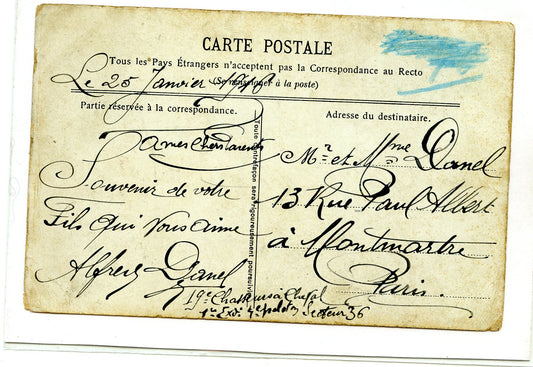 CARTE POSTALE
Tous les Pays Étrangers n'acceptent pas la Correspondance au Recto
(Se renseigner à la poste)
Le 25 Janvier
Partie réservée à la correspondance.
Adresse du destinataire.
Chers Parents
Souvenir de votre
Fils qui vous aime
Alfred Danel
19e Chasseurs à Cheval
4e peloton Secteur 36
Toute contrefaçon sera rigoureusement poursuivie
Mr et Mme Danel
13 Rue Paul Albert
à Montmartre
Paris.